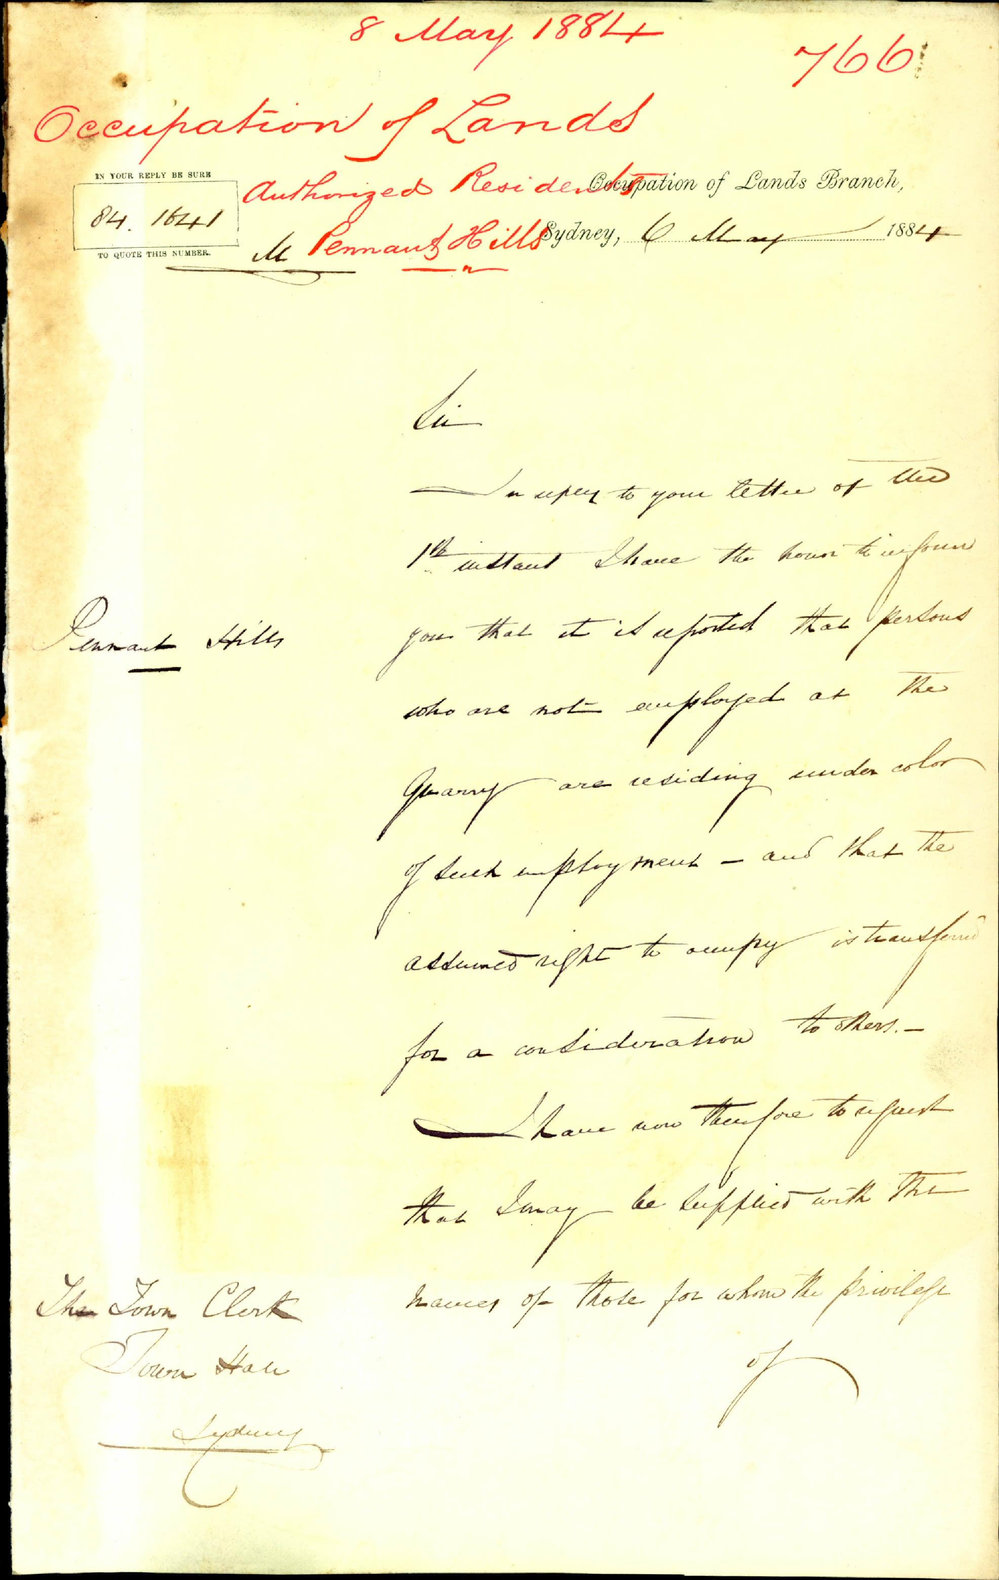 8 May 1884
766
Occupation of Lands
IN YOUR REPLY BE SURE
84. 1641
TO QUOTE THIS NUMBER.
Authorized Residents
Pennant Hills
Occupation of Lands Branch,
Sydney, 6 May 1884
Sir
In reply to your letter of the
1st instant I have the honor to inform
Pennant Hills
you that it is reported that persons
who are not employed at the
Quarry are residing under color
of such employment – and that the
assumed right to occupy is transferred
for a consideration to others. –
I have now therefore to request
that I may be supplied with the
names of those for whom the privilege
of
The Town Clerk
Town Hall
Sydney